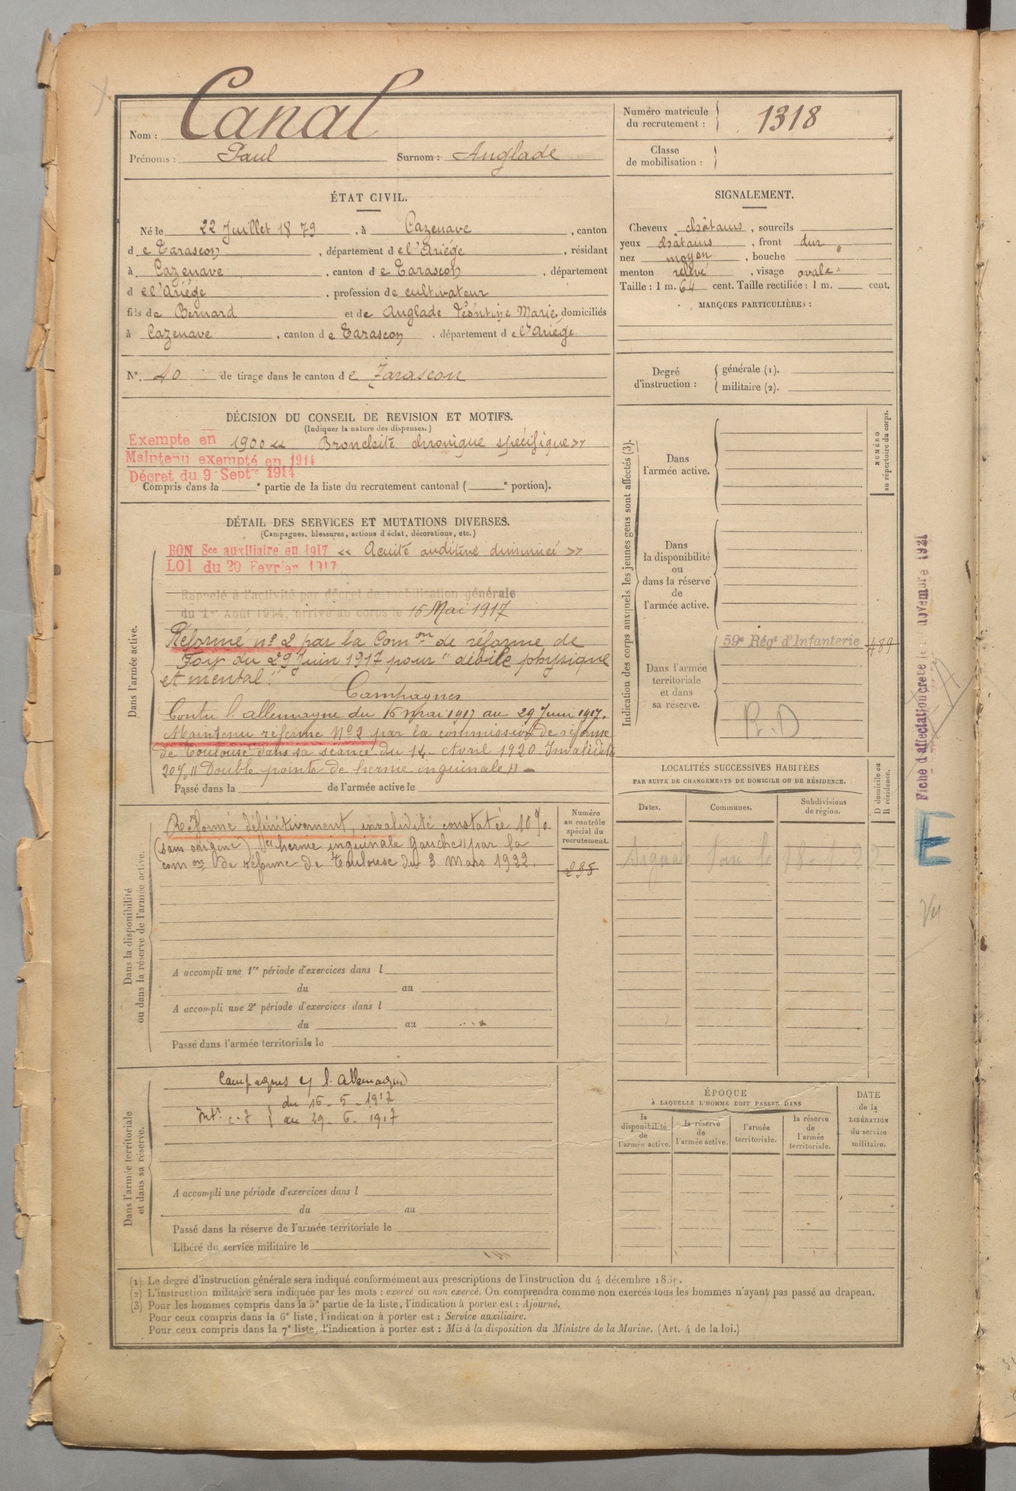 Nom : Canal
Prénoms : Paul Surnom : Anglade
Numéro matricule du recrutement : 1318
Classe de mobilisation :
ÉTAT CIVIL.
Né le 22 Juillet 1879, à Cazenave, canton
de Tarascon, département de l'Ariége, résidant
à Cazenave, canton de Tarascon, département
de l'Ariége, profession de cultivateur
fils de Bernard et de Anglade Léontine Marie, domiciliés
à Cazenave, canton de Tarascon, département de l'Ariége
N° 40 de tirage dans le canton de Tarascon
SIGNALEMENT.
Cheveux châtains, sourcils
yeux châtains, front dur
nez moyen, bouche
menton relevé, visage ovale
Taille : 1 m. 64 cent. Taille rectifiée : 1 m. cent.
MARQUES PARTICULIÈRES :
Degré d'instruction : générale (1).
militaire (2).
DÉCISION DU CONSEIL DE REVISION ET MOTIFS.
(Indiquer la nature des dispenses.)
Exempté en 1900 « Bronchite chronique spécifique »
Maintenu exempté en 1914
Décret du 9 Septre 1914
Compris dans la e partie de la liste du recrutement cantonal ( e portion).
DÉTAIL DES SERVICES ET MUTATIONS DIVERSES.
(Campagnes, blessures, actions d'éclat, décorations, etc.)
Dans l'armée active.
BON Sce auxiliaire en 1917 « Acuité auditive diminuée »
LOI du 20 Février 1917
Rappelé à l'activité par décret de mobilisation générale
du 1er Août 1914, arrivé au corps le 16 Mai 1917
Réformé n° 2 par la Comon de réforme de
Foix du 29 Juin 1917 pour " débile physique
et mental."
Campagnes
Contre l'allemagne du 16 mai 1917 au 29 Juin 1917.
Maintenu réformé N° 2 par la commission de réforme
de Toulouse dans sa séance du 14 Avril 1920 Invalidité
20% " Double pointe de hernie inguinale "
Passé dans la de l'armée active le
Dans la disponibilité ou dans la réserve de l'armée active.
Réformé définitivement, invalidité constatée 10%
(sans origine) hernie inguinale gauche par la
comon de réforme de Toulouse du 3 mars 1932.
Numéro au contrôle spécial du recrutement.
295
A accompli une 1re période d'exercices dans l
du au
A accompli une 2e période d'exercices dans l
du au
Passé dans l'armée territoriale le
Dans l'armée territoriale et dans sa réserve.
Campagnes c/ l'Allemagne
du 16-5-1917
au 29-6-1917
A accompli une période d'exercices dans l
du au
Passé dans la réserve de l'armée territoriale le
Libéré du service militaire le
Indication des corps auxquels les jeunes gens sont affectés (3).
NUMÉRO au répertoire du corps.
Dans l'armée active.
Dans la disponibilité ou dans la réserve de l'armée active.
Dans l'armée territoriale et dans sa réserve.
59e Régt d'Infanterie
R.D
LOCALITÉS SUCCESSIVES HABITÉES
PAR SUITE DE CHANGEMENTS DE DOMICILE OU DE RÉSIDENCE.
Dates. Communes. Subdivisions de région. D domicile ou R résidence.
ÉPOQUE
À LAQUELLE L'HOMME DOIT PASSER DANS
la disponibilité de l'armée active.
la réserve de l'armée active.
l'armée territoriale.
la réserve de l'armée territoriale.
DATE de la LIBÉRATION du service militaire.
E
(1) Le degré d'instruction générale sera indiqué conformément aux prescriptions de l'instruction du 4 décembre
(2) L'instruction militaire sera indiquée par les mots : exercé ou non exercé. On comprendra comme non exercés tous les hommes n'ayant pas passé au drapeau.
(3) Pour les hommes compris dans la 5e partie de la liste, l'indication à porter est : Ajourné.
Pour ceux compris dans la 6e liste, l'indication à porter est : Service auxiliaire.
Pour ceux compris dans la 7e liste, l'indication à porter est : Mis à la disposition du Ministre de la Marine. (Art. 4 de la loi.)